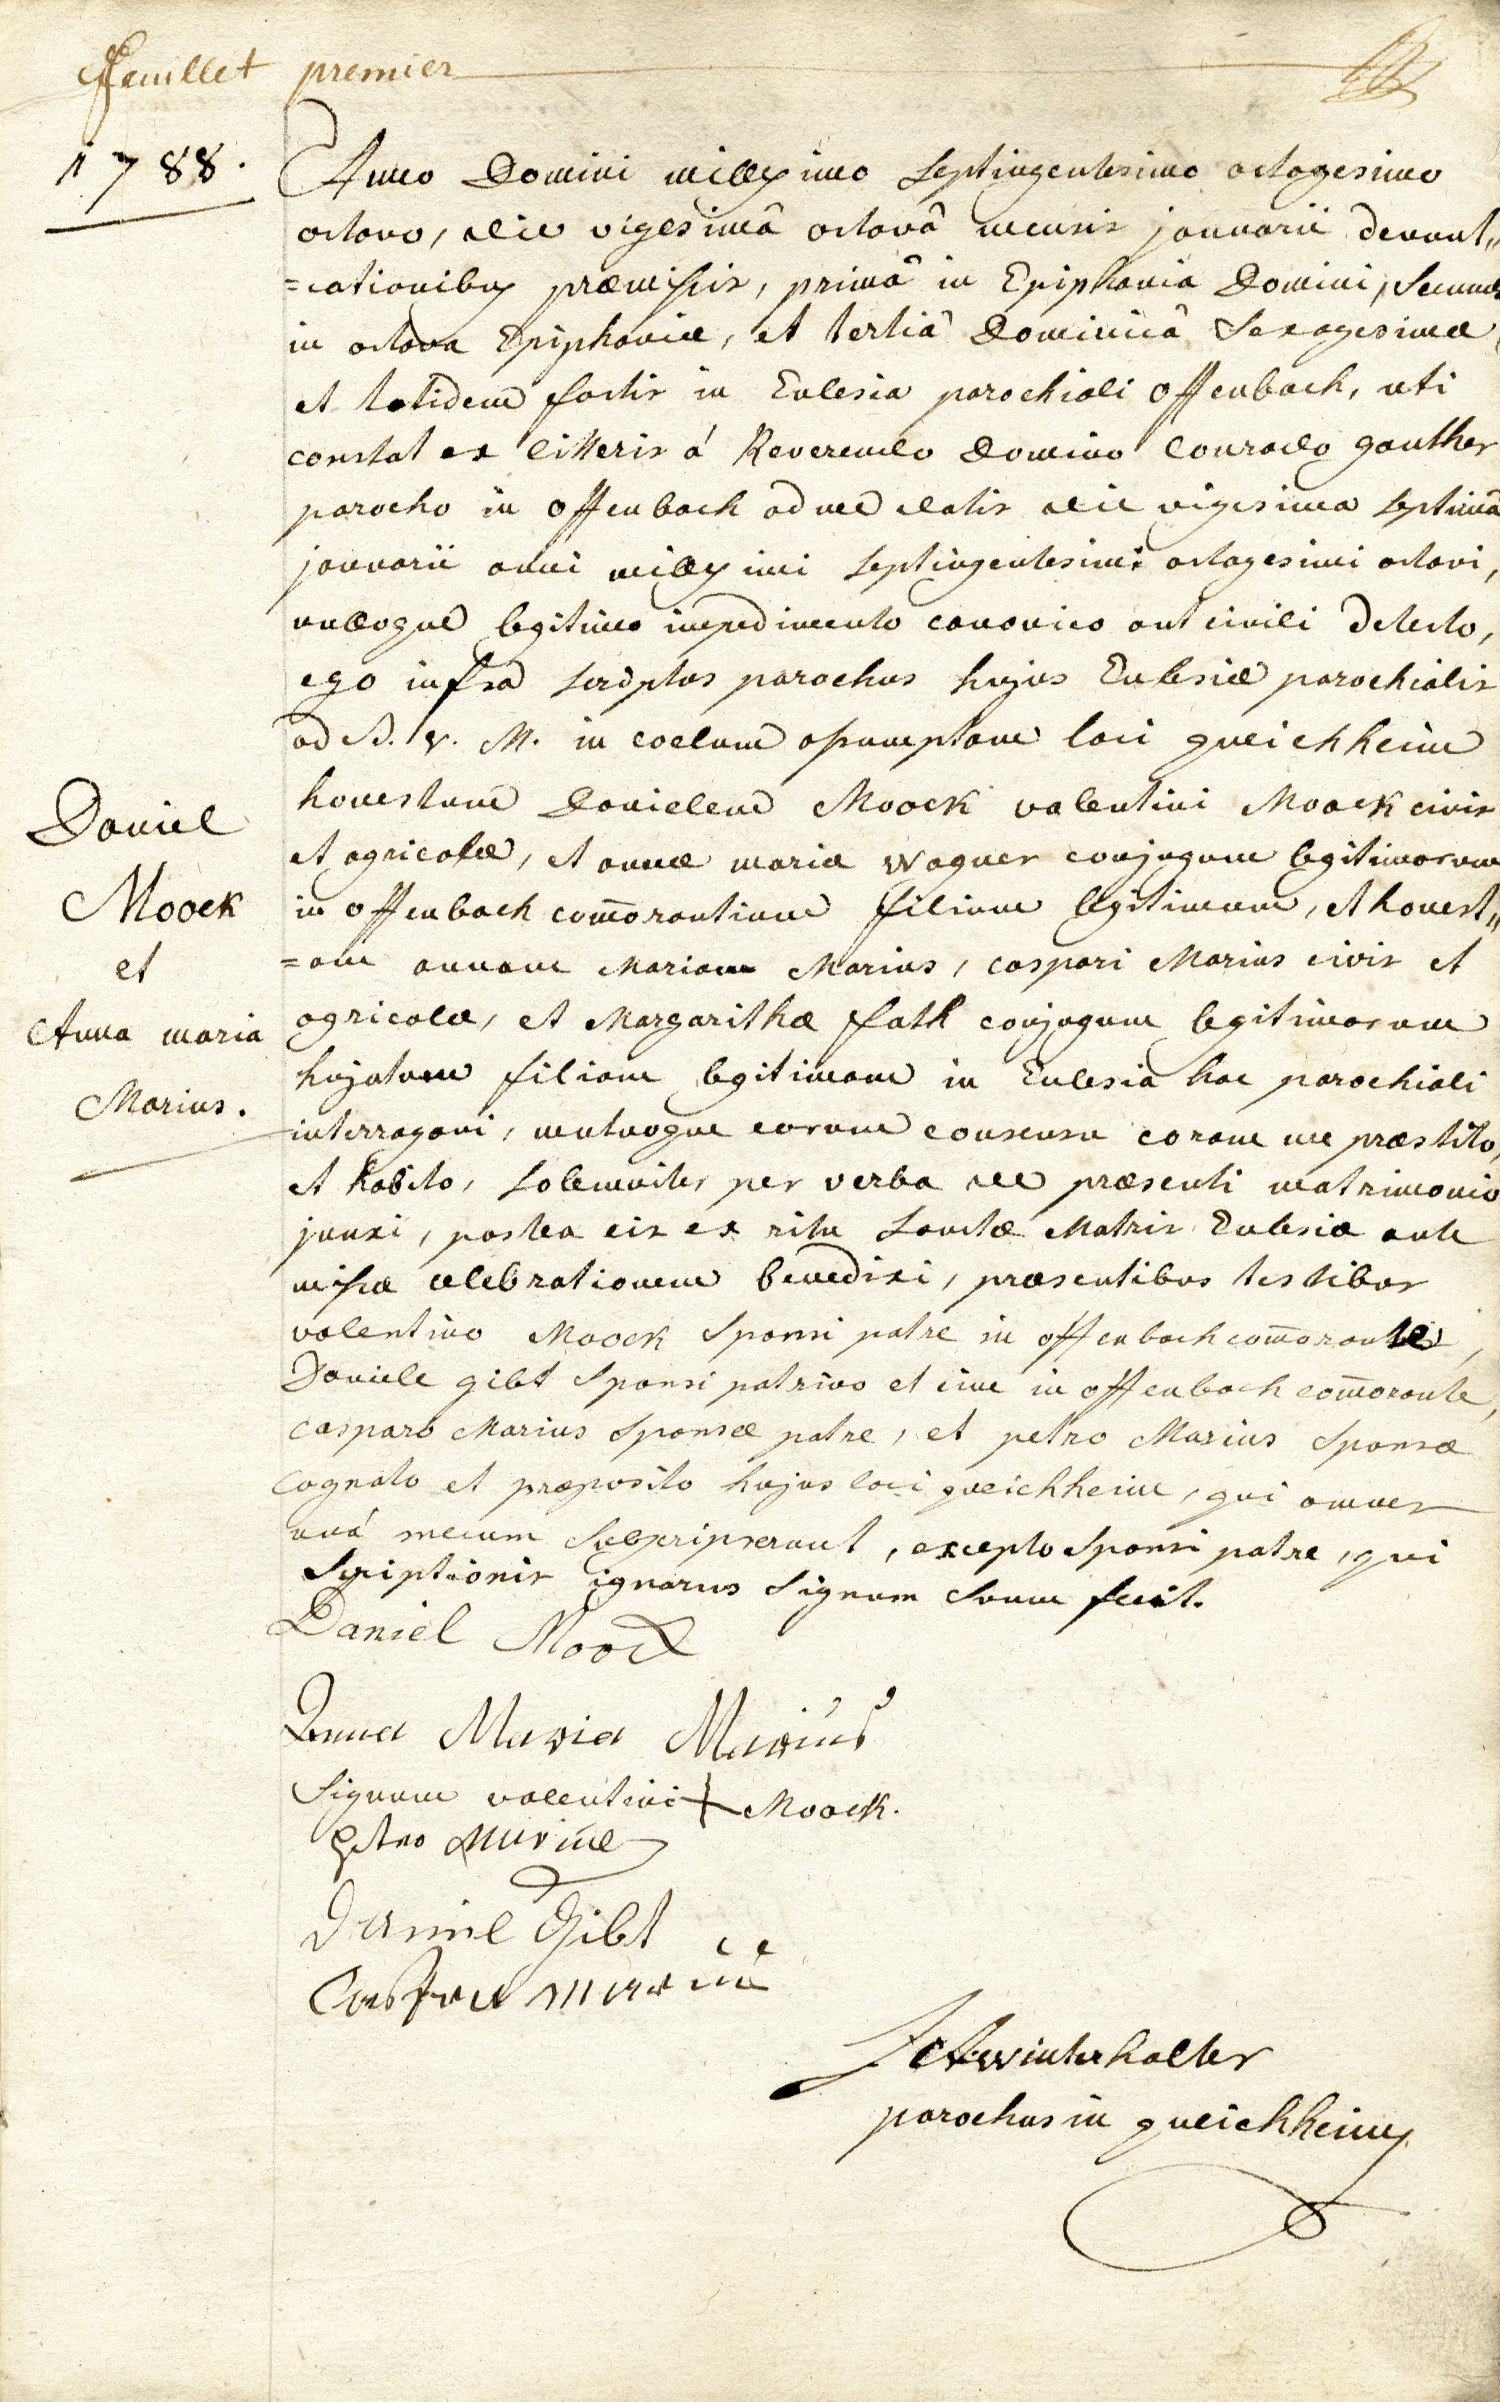 feuillet premier
1788.
Anno Domini millesimo septingentesimo octogesimo
octavo, die vigesimâ octavâ mensis januarii denunt„
=iationibus præmissis, primâ in Epiphania Domini, secunda
in octava Epiphaniæ, et tertiâ Dominicâ Sexagesimæ
et totidem factis in Eclesia parochiali Offenbach, uti
constat ex litteris á Reverendo Domino Conrado ganther
parocho in Offenbach ad me datis die vigesima septimâ
januarii anni millesimi septingentesimi octogesimi octavi,
nulloque legitimo impedimento canonico aut civili detecto,
ego infra scriptus parochus hujus Eclesiæ parochialis
ad B. V. M. in coelum assumptam loci queichheim
honestum Danielem Moock valentini Moock civis
et agricolæ, et annæ mariæ Wagner conjugum legitimorum
in Offenbach com̄orantium filium legitimum, et honest„
=am annam Mariam Marius, caspari Marius civis et
agricolæ, et Margarithæ fath conjugum legitimorum
hujatum filiam legitimam in Eclesia hac parochiali
interrogavi, mutuoque eorum consensu coram me præstito,
et habito, solemniter per verba de præsenti matrimonio
junxi, postea eis ex ritu Sanctæ Matris Eclesiæ ante
missæ celebrationem benedixi, præsentibus testibus
valentino Moock Sponsi patre in offenbach com̄orante,
Daniele gibt Sponsi patrino et cive in offenbach com̄orante,
casparo Marius Sponsæ patre, et petro Marius Sponsæ
cognato et præposito hujus loci queichheim, qui omnes
unâ mecum subscripserunt, excepto Sponsi patre, qui
scriptionis ignarus signum suum fecit.
Daniel
Moock
et
Anna maria
Marius.
Daniel Moock
Anna Maria Marius
Signum valentini + Moock.
Petro Marius
Daniel Gibt
Casper Marius
Winterhalter
parochus in queichheim